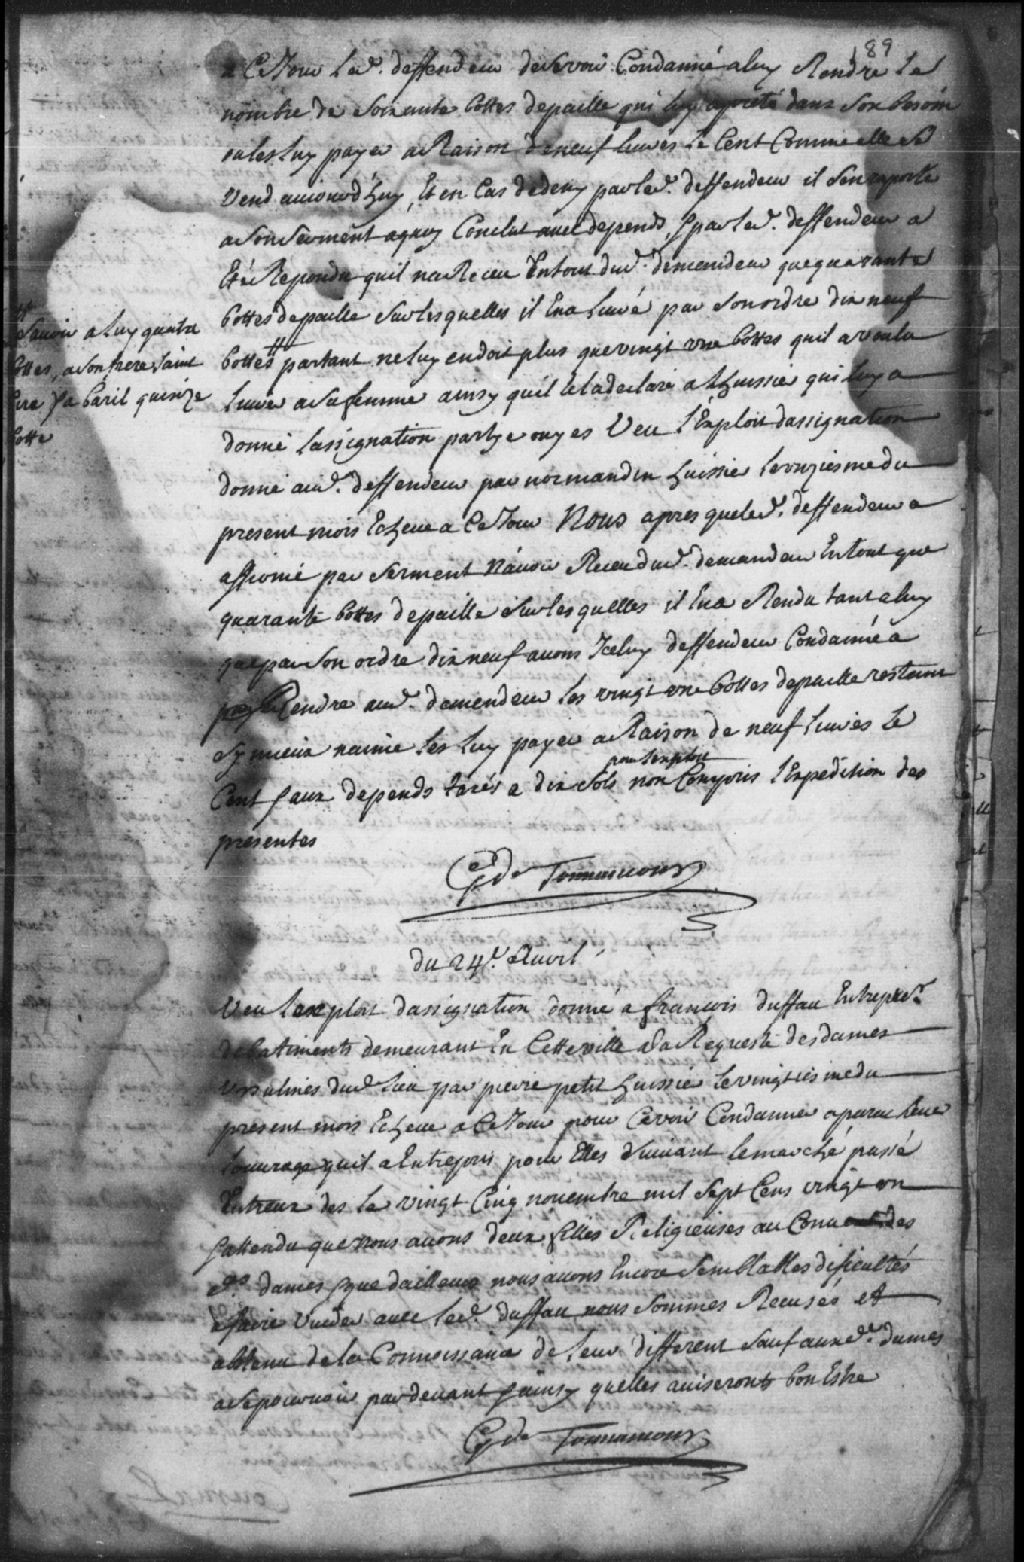 89
a Ce Jour led. deffendeur de Se voir Condamné a luy Rendre le
nombre de Soixante bottes depaille qui luy a preté dans Son besoin
ou les luy payer a Raison de neuf livres le Cent Comme elle Se
vend aujourdhuy, Et en Cas de deny par led. deffendeur il S'en raporte
a Son Serment aquoy Conclut avec depends, & par led. deffendeur a
Eté Repondu quil na Receu En tout dud. demandeur que quarante
bottes de paille Sur lesquelles il En a livré par Son ordre dix neuf
bottes # partant ne luy en doit plus que vingt une bottes quil a voulu
livrer a Sa femme ainsy quil le la declaré a Lhuissier qui luy a
donné lassignation partye ouyes Veu l'Exploit dassignation
donné aud. deffendeur par normandin huissier le onziesme du
present mois Echeue a Ce Jour Nous apres que led. deffendeur a
affirmé par Serment n'avoir Receu dud. demandeur En tout que
quarante bottes de paille Sur lesquelles il En a Rendu tant a luy
que par Son ordre dix neuf avons Iceluy deffendeur Condamné a
Rendre aud. demandeur les vingt une bottes de paille restant
Sy mieux naime les luy payer a Raison de neuf livres le
Cent & aux depends taxés a dix Sols pour lexploit non Compris l'Expedition des
presentes
# Savoir a luy quatre
bottes, a Son frere Saint
quinze
botte
Gd. de Tonnancour
du 24e. Avril
Veu lexploit dassignation donné a francois duffau Entrepren.r
de batiments demeurant En Cette ville a la Requeste des dames
ursulines dud. lieu par pierre petit huissier le vingtiesme du
present mois Echeue a Ce Jour pour Ce voir Condamner a parachever
louvrage quil a Entrepris pour Elles Suivant le marché passé
Entreux des le vingt Cinq novembre mil Sept Cens vingt un
& attendu que nous avons deux filles Religieuses au Convent des
d. dames & que dailleurs nous avons Encore Semblables dificultés
a faire vuider avec led. duffau, nous Sommes Recusés et
abstenu de la Connoissance de leur different Sauf aux d. dames
a Se pourvoir par devant & ainsy quelles aviseront bon Estre
Gd. de Tonnancour